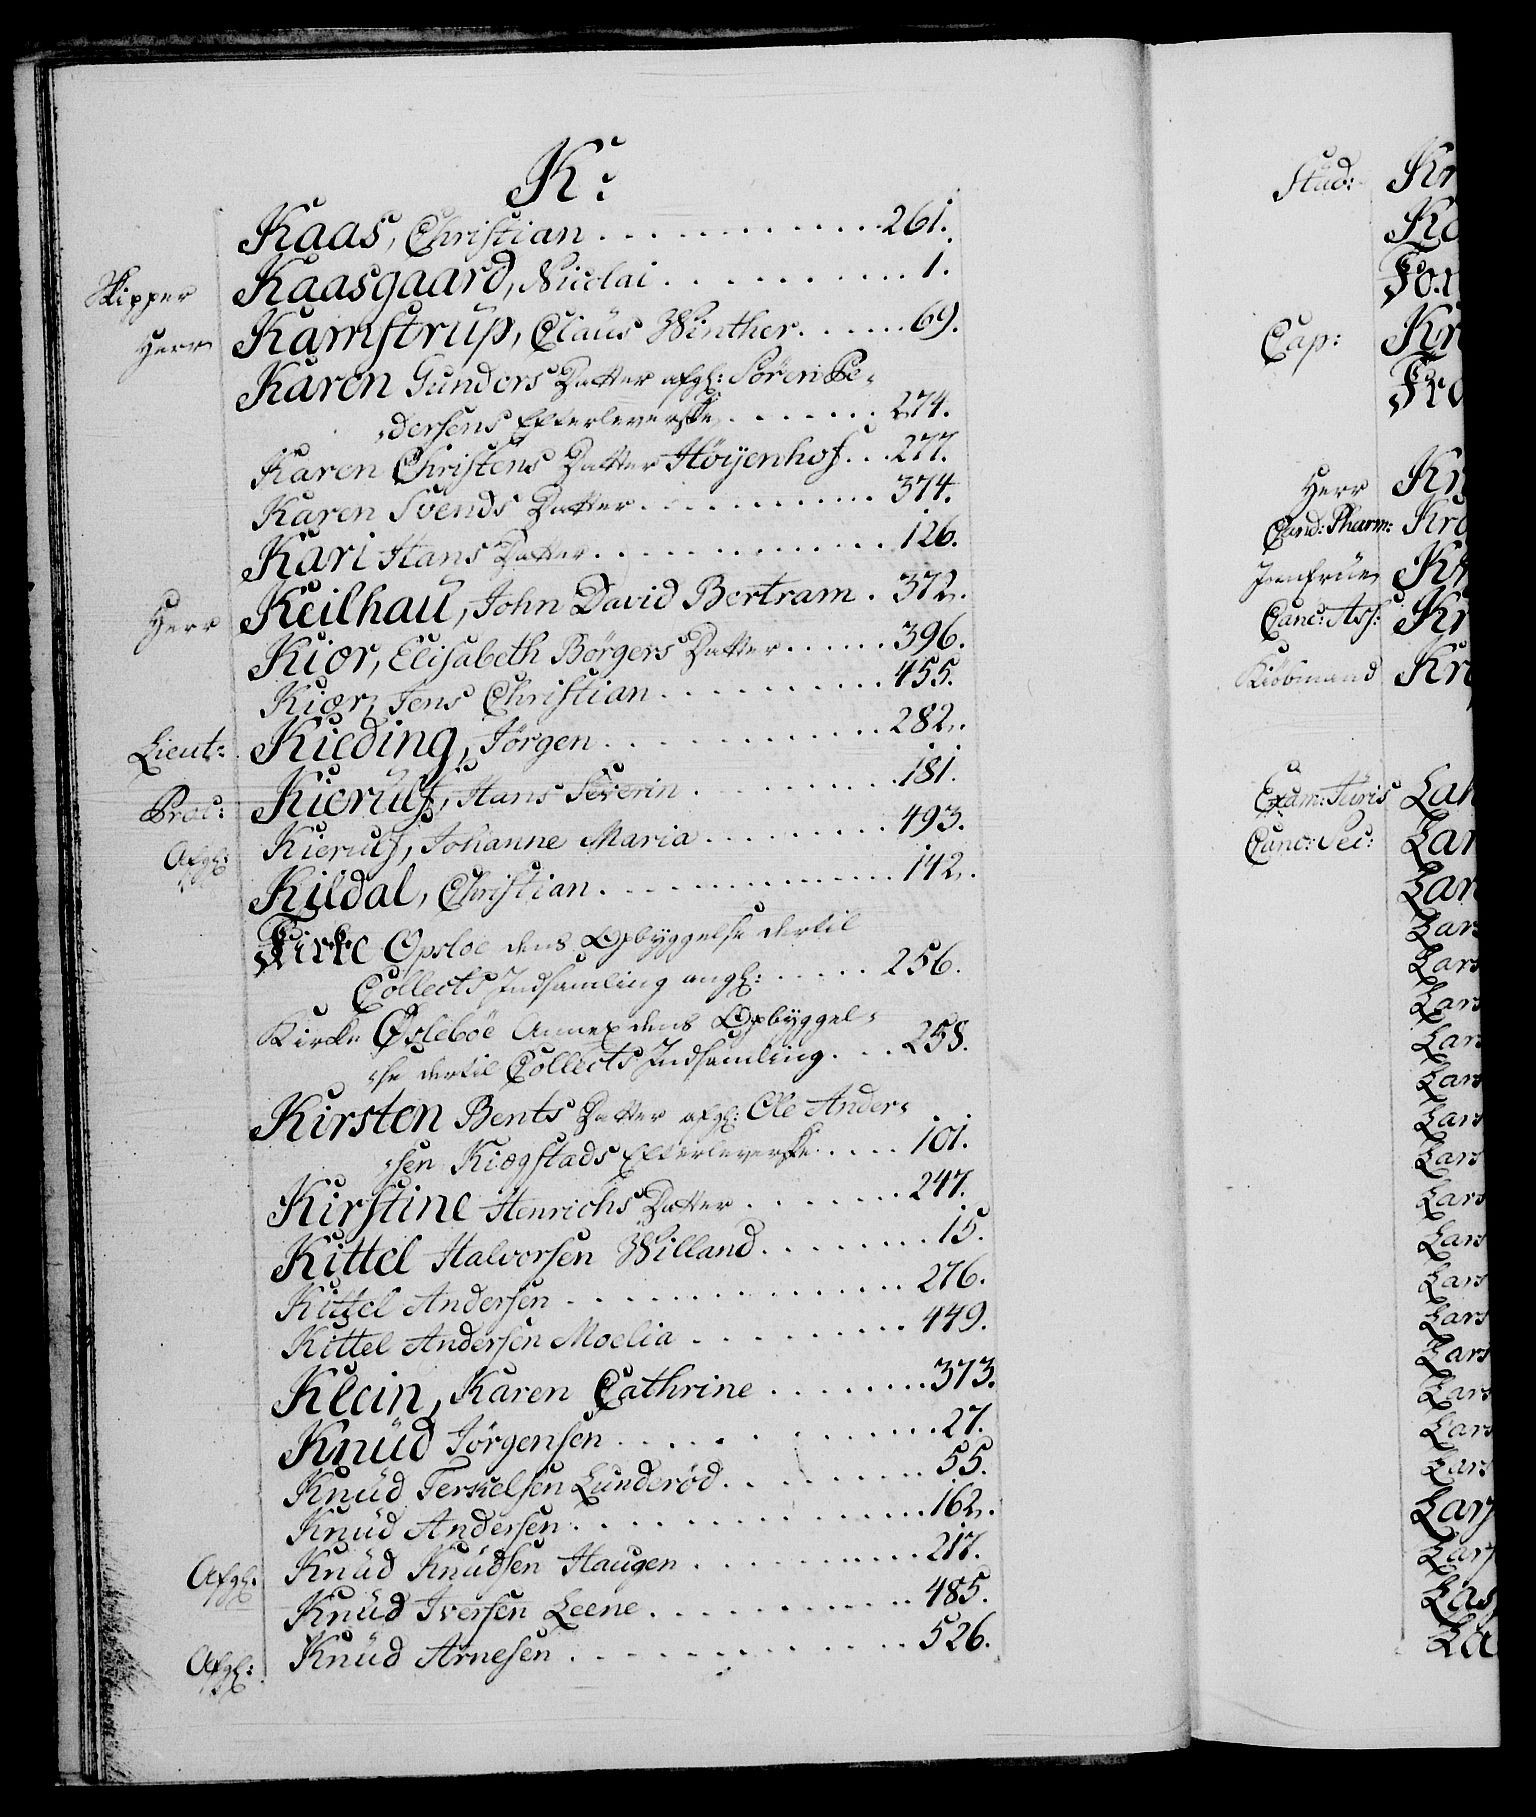 K.
Kaas, Christian . . . . . . . . . . . . 261.
Skipper Kaasgaard, Nicolai . . . . . . . . . . 1.
Herr Kamstrup, Claus Winther . . . . . . 69.
Karen Gunders Datter afgl: Sören Pe-
dersens Efterleverske . . . . . . . 274.
Karen Christens Datter Höyenhof . . . 277.
Karen Svends Datter . . . . . . . . . . . 374.
Kari Hans Datter . . . . . . . . . . . . . 126.
Herr Keilhau, John David Bertram . 372.
Kior, Elisabeth Börgers Datter . . . . . . 396.
Kior, Jens Christian . . . . . . . . . . 455.
Lieut: Kieding, Jörgen . . . . . . . . . . . . 282.
Proc: Kierulf, Hans Severin . . . . . . . . . 181.
Afgl: Kierulf, Johanne Maria . . . . . . . . . 493.
Kildal, Christian . . . . . . . . . . . . . 142.
Kirke Opsloe dens Opbyggelse dertil
Collects Indsamling angl: . . . . . 256.
Kirke Ösleböe Annex dens Opbyggel-
se dertil Collects Indsamling . . . 258.
Kirsten Bents Datter afgl: Ole Ander-
sen Kiogstads Efterleverske . . . . . 101.
Kirstine Henrichs Datter . . . . . . . . 247.
Kittel Halvorsen Willand . . . . . . . . 15.
Kittel Andersen . . . . . . . . . . . . . . 276.
Kittel Andersen Moelia . . . . . . . . . 449.
Klein, Karen Cathrine . . . . . . . . 373.
Knud Jörgensen . . . . . . . . . . . . . 27.
Knud Terkelsen Lunderöd . . . . . . . . . 55.
Knud Andersen . . . . . . . . . . . . . . . 162.
Afgl: Knud Knudsen Haugen . . . . . . . . . . . 217.
Knud Iversen Leene . . . . . . . . . . . . 485.
Afgl: Knud Arnesen . . . . . . . . . . . . . . 526.
Stud: Kr
Cap: Kr
Herr Kr
Cand: Pharm: Kro
Jomfrue
Canc: Ass: Kr
Kiöbmand Kr
Exam: Juris Lah
Canc: Sec: Lar
Lar
Lars
Lars
Lars
Lars
Lars
Lars
Lars
Lars
Lars
Lars
Lars
Lars
Lars
Lars
Lars
Lars
Las
La